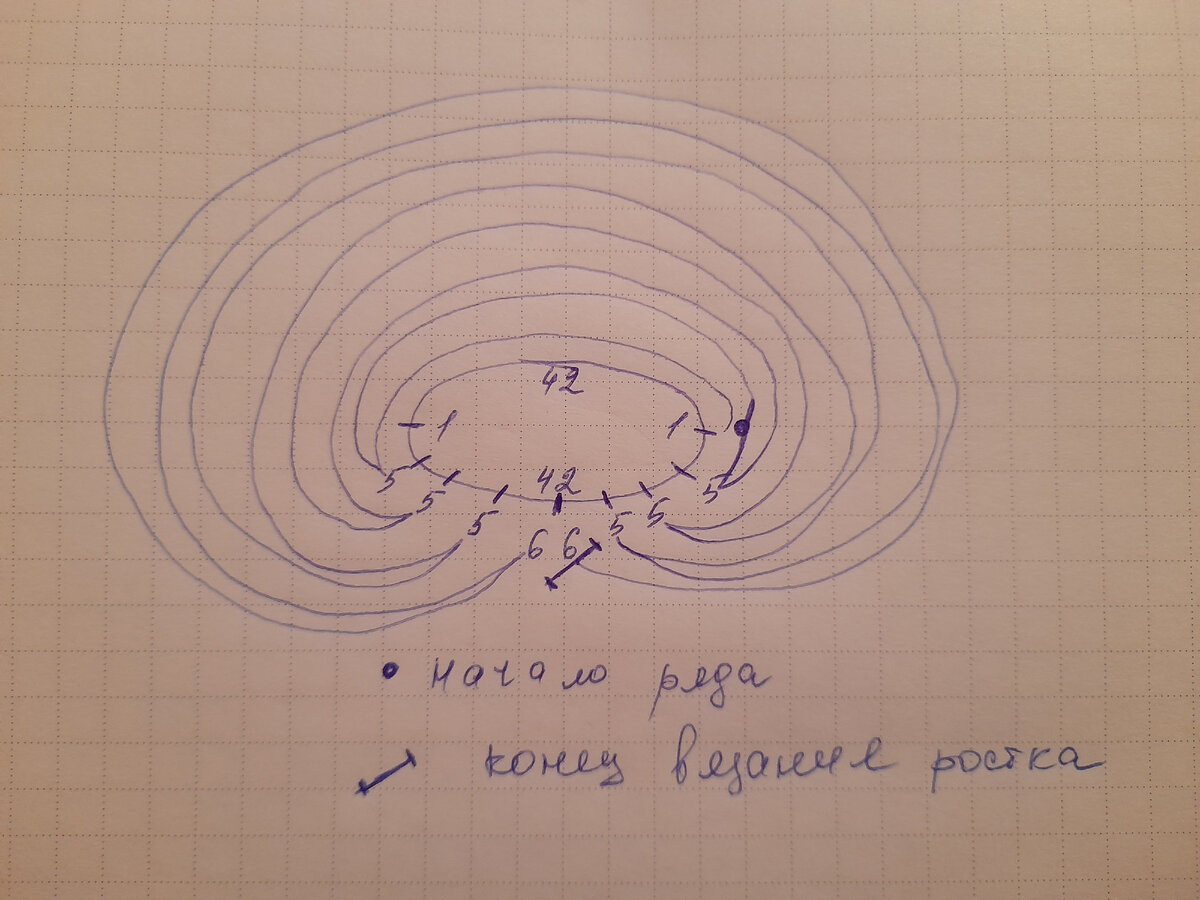 42
1 1
42
5 5
5 5
5 5
6 6
начало ряда
конец вязания ростка